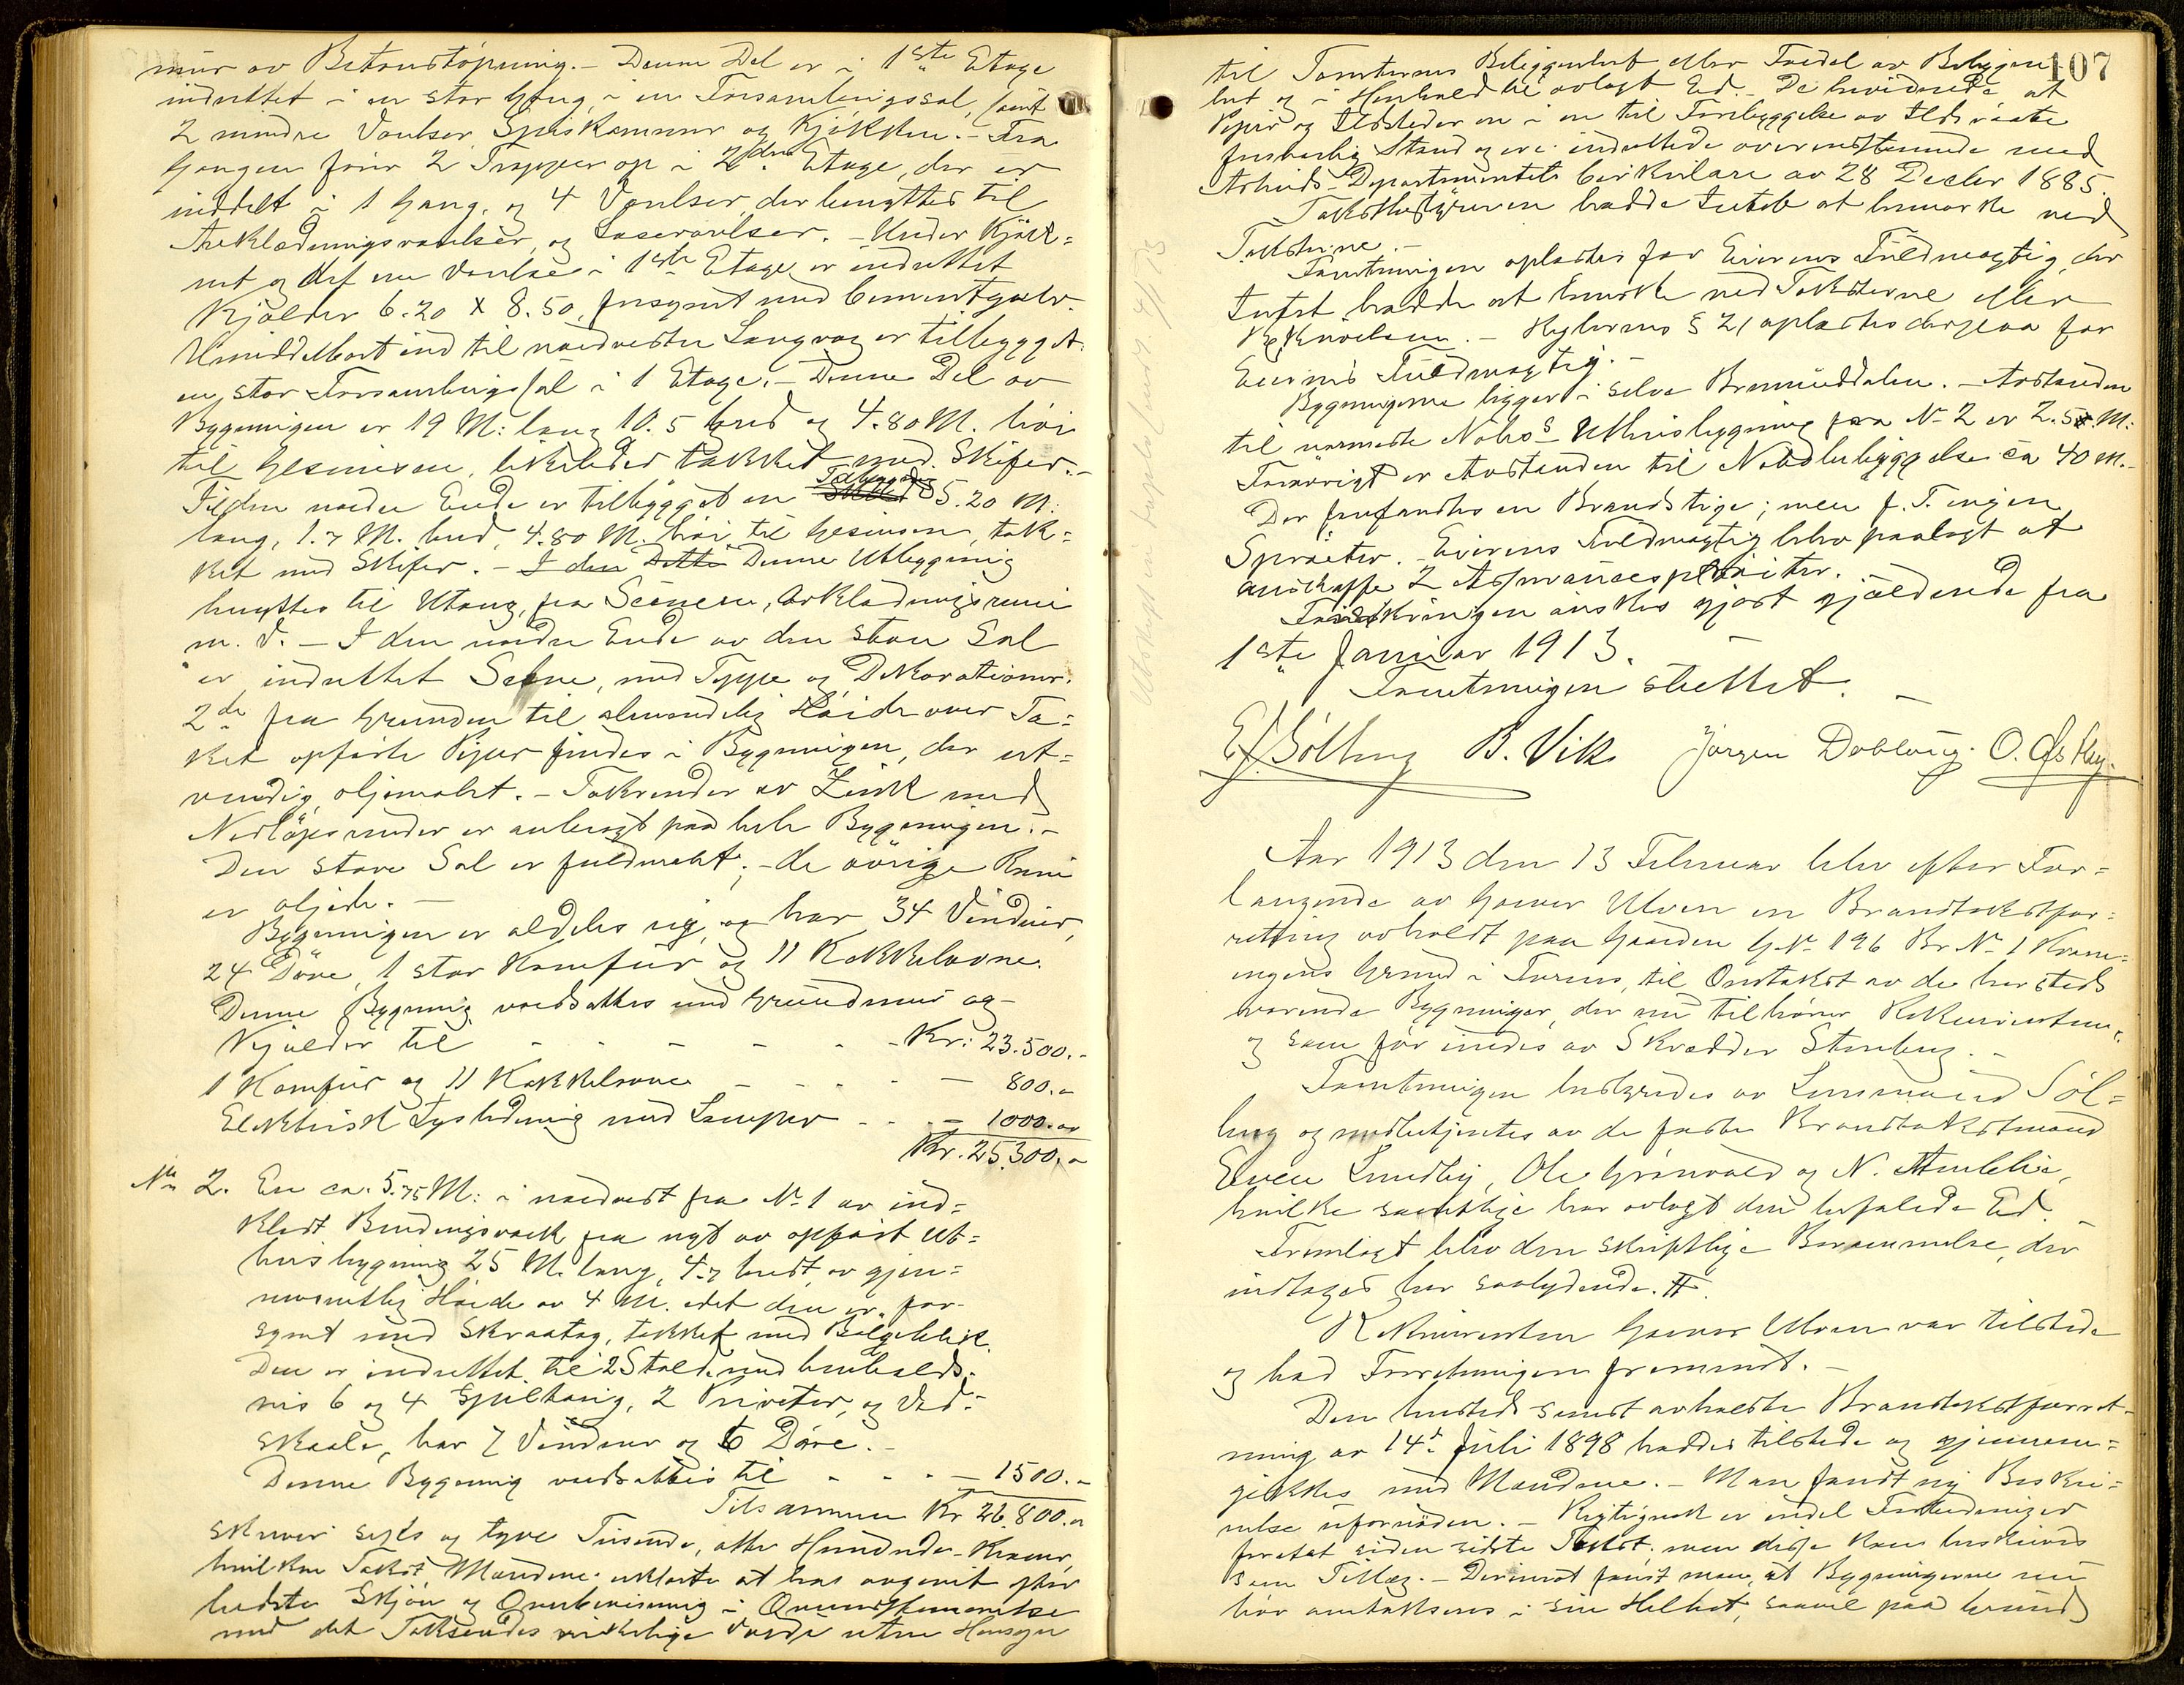 mur av Betonstøpning. – Denne Del er i 1ste Etage
indrettet i en stor Gang, i en Forsamlingssal, samt
2 mindre Værelser, Spiskammer og Kjøkken. – Fra
Gangen fører 2 Trapper op i 2den Etage, der er
inddelt i 1 Gang, og 4 Værelser, der benyttes til
Avklædningsværelser, og Læseværelser. – Under Kjøk=
net og det ene Værelse i 1ste Etage er indrettet
Kjælder 6.20 x 8.50, forsynet med Cementgulv.
Umiddelbart ind til nordvestre Langvæg er tilbygget
en stor Forsamlingssal i 1 Etage. – Denne Del av
Bygningen er 19 M: lang 10.5 bred og 4.80 M. høi
til Gesimsen, likeledes tækket med Skifer. –
Til den nordre Ende er tilbygget en Tilbygg 5.20 M:
lang, 1.7 M. bred, 4.80 M. høi til Gesimsen, tæk=
ket med Skifer. – I den Dette Denne Utbygging
benyttes til Utgang fra Scenen, Avklædningsrum
m. v. – I den nordre Ende av den store Sal
er indrettet Scene, med Tæppe og Dekorationer.
2de fra Grunden til almindelig Høide over Ta=
ket opførte Piper findes i Bygningen, der ut=
vendig oljemalet. – Takrender av Zink med
Nedløpsrender er anbragt paa hele Bygningen. –
Den store Sal er fuldmalt; – de øvrige Rum
er oljede. –
Bygningen er aldeles ny, og har 34 Vinduer,
24 Døre, 1 stor Komfur og 11 Kakkelovne.
Denne Bygning værdsattes med Grundmur og
Kjælder til - - - - - - Kr: 23.500. -
1 Komfur og 11 Kakkelovne - - - - - 800. -
Elektrisk Lysledning med Lamper - - - 1000. -
Kr. 25.300. -
No 2. En ca. 5.75 M: i nordvest fra No 1 av ind=
klædt Bindingsverk fra nyt av opført Ut=
husbygning 25 M. lang, 4.7 bredt, av gjen=
nemsnitlig Høide av 4 M. idet den er for-
synet med Skraatag, tækket med Bølgeblik.
Den er indrettet til 2 Stalde med henholds-
vis 6 og 4 Spiltaug, 2 Priveter, og Ved-
skaale, har 7 Vinduer og 6 Døre. –
Denne Bygning værdsattes til - - - - 1500. -
Tilsammen Kr 26.800. -
skriver seks og tyve Tusende, otte Hundrede Kroner,
hvilken Takst Mændene erklærte at har avgivet efter
bedste Skjøn og Overbevisning i Overensstemmelse
med det Taksendes virkelige Værdi uten Hensyn
107
til Tomternes Beliggenhet eller Fordel av Beliggen-
het og i Henhold til avlagt Ed. – De bevidnede at
Piper og Ildsteder er i en til Forebyggelse av Ildsvaade
forsvarlig Stand og er indrettede overensstemmende med
Arbeids-Departmentets Cirkulære av 28 Decbr 1885.
Takstbestyreren hadde Intet at bemærke ved
Taksterne. –
Forretningen oplæstes for Eierens Fuldmægtig, der
Intet hadde at bemærke ved Taksterne eller
Beskrivelsen. – Reglernes § 21 oplæstes derpaa for
Eierens Fuldmægtig. –
Bygningerne ligger i selve Brumunddalen. – Avstanden
til nærmeste Nabos Uthusbygning fra No 2 er 2.5 M.
Forøvrigt er Avstanden til Nabobebyggelse ca 40 M. –
Der forefandtes en Brandstige; men p. T. ingen
Sprøiter. – Eierens Fuldmægtig blev paalagt at
anskaffe 2 Assuransesprøiter.
Forsikringen ønskes gjort gjældende fra
1ste Januar 1913.
Forretningen sluttet. –
E. Sölberg B. Vik Jørgen Dobloug. O.
Aar 1913 den 13 Februar blev efter For=
langende av Gunner Ulven en Brandtakstfor=
retning avholdt paa Gaarden GNo 196 BrNo 1
ingens Grund i Furnes, til Omtakst av de hersteds
værende Bygninger, der nu tilhører Rekvirenten,
og som før eiedes av Skrædder Stenberg. –
Forretningen bestyredes av Lensmand Søl=
berg og medbetjentes av de faste Brandtakstmænd
Even Smedby, Ole Grönvold og N. Amlie,
hvilke samtlige har avlagt den befalede Ed.
Fremlagt blev den skriftlige Berammelse, der
indtages her saalydende. #.
Rekvirenten Gunner Ulven var tilstede
og bad Forretningen fremmet. –
Den hersteds senest avholdte Brandtakstforret-
ning av 14de Juli 1898 haddes tilstede og gjennem=
gikkes med Mændene. – Man fandt ny Beskri=
velse ufornøden. – Rigtignok er endel Forbedringer
foretat siden sidste Takst, men disse kan beskrives
som Tillæg. – Derimot fandt man, at Bygningerne nu
bør omtakseres i sin Helhet, saavel paa Grund